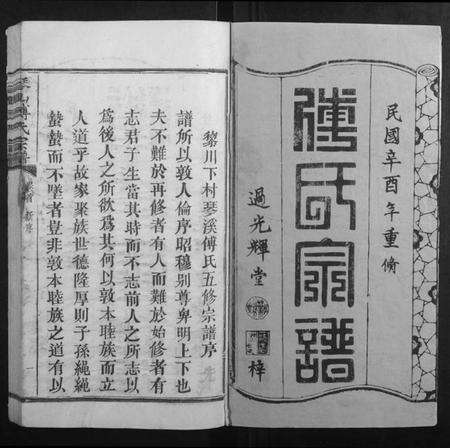 民國辛酉年重脩
傅氏宗譜
過光輝堂
梓
黎川下村琴溪傅氏五修宗譜序
譜所以敦人倫序昭穆別尊卑明上下也
夫不難於再修者有人而難於始修者有
志君子生當其時而不志前人之所志以
爲後人之所欲爲其何以敦本睦族而立
人道乎故家聚族世德隆厚則子孫繩繩
蟄蟄而不墜者豈非敦本睦族之道有以